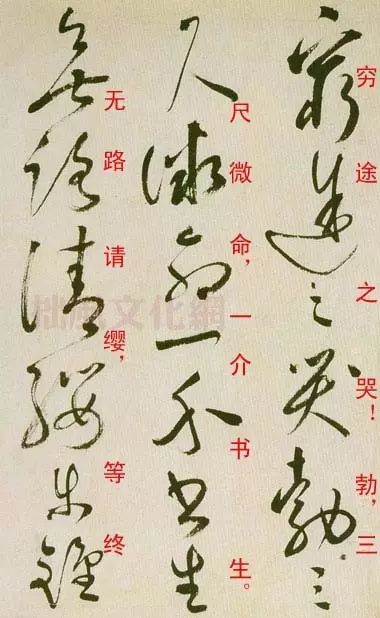 穷途之哭！勃，三
窮途之哭勃三
尺微命，一介书生。
尺微命一介書生
无路请缨，等终
無路請纓等
拙風文化網